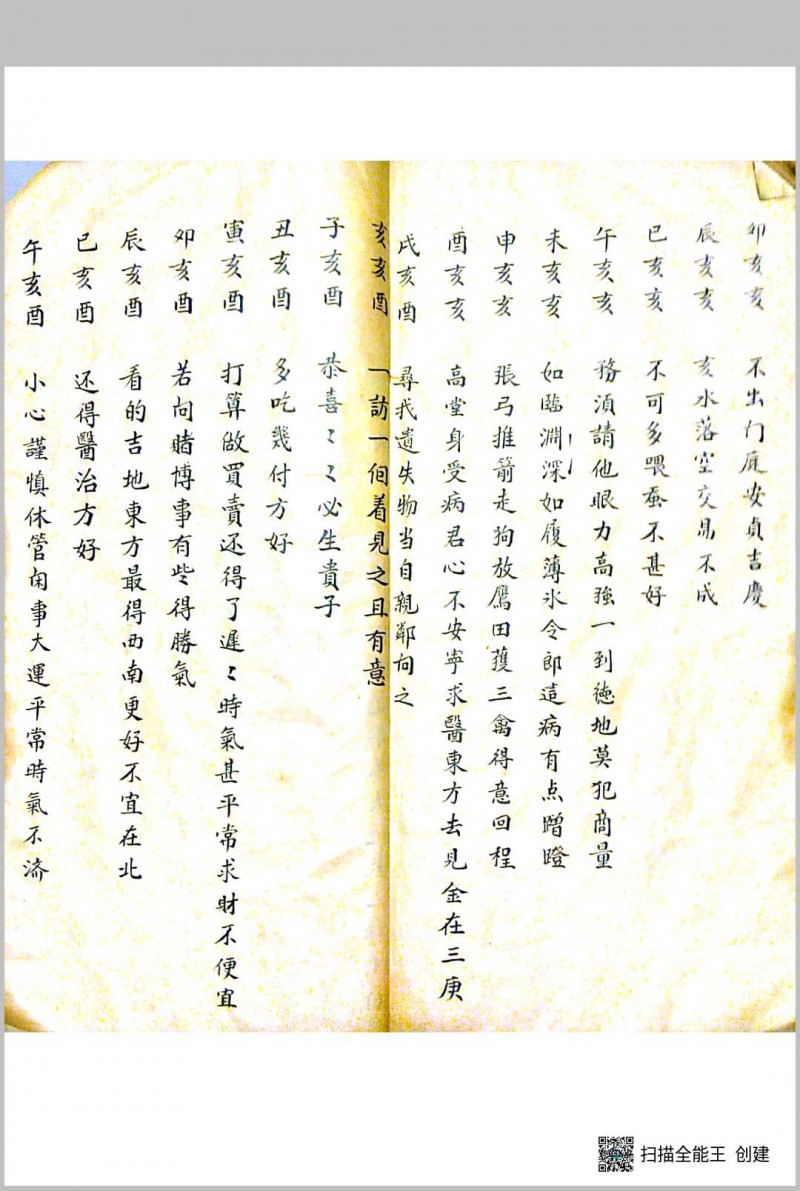 卯亥亥 不出门庭安貞吉慶
辰亥亥 亥水落空交易不成
巳亥亥 不可多喂蚕不甚好
午亥亥 務須請他眼力高強一到德地莫犯商量
未亥亥 如臨淵深如履薄氷令郎這病有点蹭蹬
申亥亥 張弓推箭走狗放鷹田獲三禽得意回程
酉亥亥 高堂身受病君心不安寧求醫東方去見金在三庚
戌亥酉 尋找遺失物当自親鄰向之
亥亥酉 一訪一個着見之且有意
子亥酉 恭喜〻〻必生貴子
丑亥酉 多吃幾付方好
寅亥酉 打算做買賣还得了遲〻時氣甚平常求財不便宜
卯亥酉 若问賭博事有些得勝氣
辰亥酉 看的吉地東方最得西南更好不宜在北
巳亥酉 还得醫治方好
午亥酉 小心謹慎休管闲事大運平常時氣不济
扫描全能王 创建